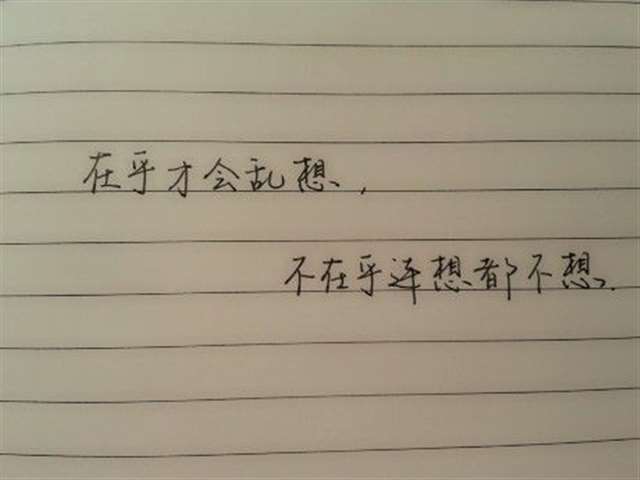 在乎才会乱想,
不在乎连想都不想.